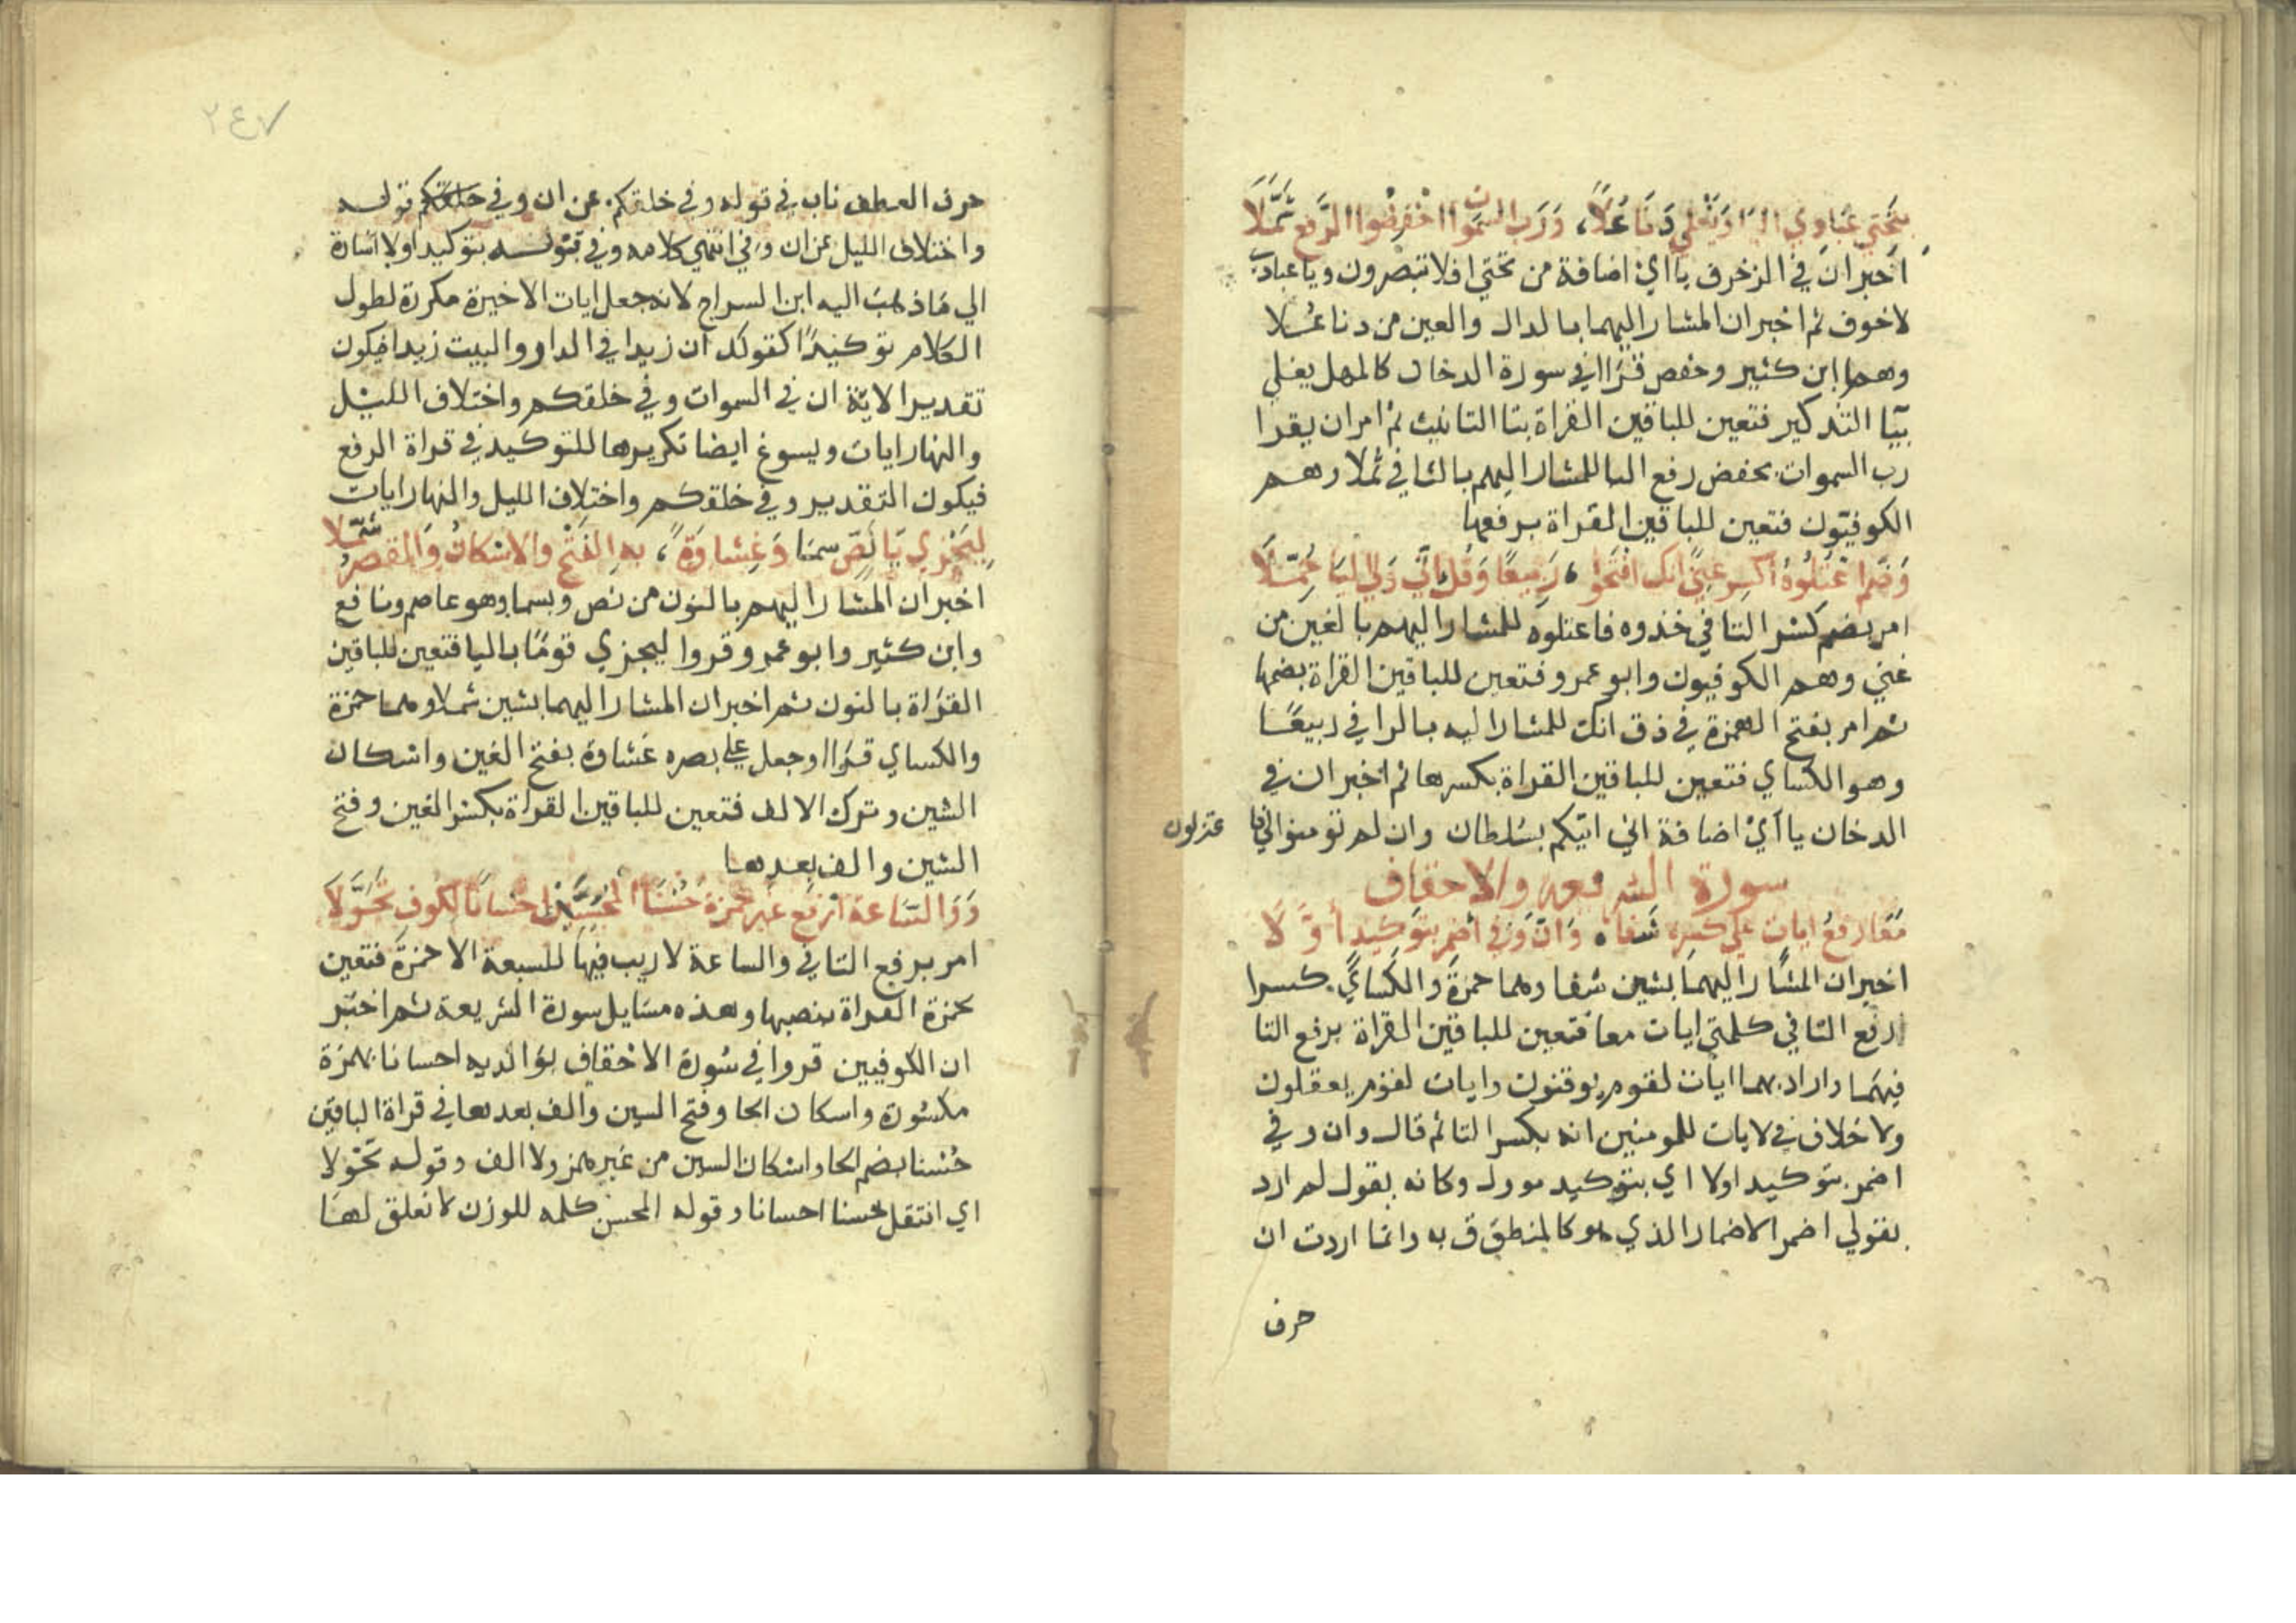 بتحتي عبادي اليا ويغلي دنا علا، ورب السموات اخفضوا الرفع ثملا
اخبر ان في الزخرف يااي اضافة من تحتي افلا تبصرون ويا عبادي
لاخوف ثم اخبر ان المشار اليهما بالدال والعين من دنا علا
وهما ابن كثير وحفص قرا في سورة الدخان كالمهل يغلي
بيا التذكير فتعين للباقين القراة بتا التانيث ثم امر ان يقرا
رب السموات بخفض رفع البا للمشار اليهم بالثا في ثملا وهم
الكوفيون فتعين للباقين القراة برفعها
وضم اعتلوه اكسر غنى انك افتحوا، ربيعا وقل اني ولي اليا حملا
امر بضم كسر التا في خذوه فاعتلوه للمشار اليهم بالغين من
غني وهم الكوفيون وابو عمرو فتعين للباقين القراة بضمها
ثم امر بفتح الهمزة في ذق انك للمشار اليه بالرا في ربيعا
وهو الكساي فتعين للباقين القراة بكسرها ثم اخبر ان في
الدخان يا آي اضافة اني اتيكم بسلطان وان لم تومنوا لي فاعتزلون
سورة الشريعة والاحقاف
معا رفع ايات على كسره شفا، وان وفي اضمر بتوكيد أولا
اخبر ان المشار اليهما بشين شفا وهما حمزة والكساي كسرا
رفع التا في كلمتي ايات معا فتعين للباقين القراة برفع التا
فيهما واراد بهما ايات لقوم يوقنون وايات لقوم يعقلون
ولا خلاف في لايات للمومنين انه بكسر التا ثم قال وان وفي
اضمر بتوكيد اولا اي بتوكيد مورل وكانه يقول لم ارد
بقولي اضمر الاضمار الذي هو كالمنطوق به وانما اردت ان
حرف
٢٤٧
حرف العطف ناب في قوله وفي خلقكم عن ان وفي خلقكم قوله
واختلاف الليل عن ان وفي انتهي كلامه وفي قوله بتوكيد اولا اشارة
الي ما ذهب اليه ابن السراج لانه جعل ايات الاخيرة مكررة لطول
الكلام توكيدا كقولك ان زيدا في الدار والبيت زيدا فيكون
تقدير الاية ان في السموات وفي خلقكم واختلاف الليل
والنهار ايات ويسوغ ايضا تكريرها للتوكيد في قراة الرفع
فيكون التقدير وفي خلقكم واختلاف الليل والنهار ايات
ليجزي يا نص سما وغشاوة، به الفتح والاسكان والقصر شملا
اخبر ان المشار اليهم بالنون من نص وبسما وهو عاصم ونافع
وابن كثير وابو عمرو قروا ليجزي قوما باليا فتعين للباقين
القراة بالنون ثم اخبر ان المشار اليهما بشين شملا وهما حمزة
والكساي قرا وجعل علي بصره غشاوة بفتح الغين واسكان
الشين وترك الالف فتعين للباقين القراة بكسر الغين وفتح
الشين والف بعدها
ووالساعة ارفع غير حمزة حسنا المحسن احسانا لكوف تحولا
امر برفع التا في والساعة لا ريب فيها للسبعة الا حمزة فتعين
لحمزة القراة بنصبها وهذه مسايل سورة الشريعة ثم اخبر
ان الكوفيين قروا في سورة الاحقاف بوالديه احسانا بهمزة
مكسورة واسكان الحا وفتح السين والف بعدها في قراة الباقين
حسنا بضم الحا واسكان السين من غير همز ولا الف وقوله تحولا
اي انتقل حسنا احسانا وقوله المحسن كلمه للوزن لا تعلق لها